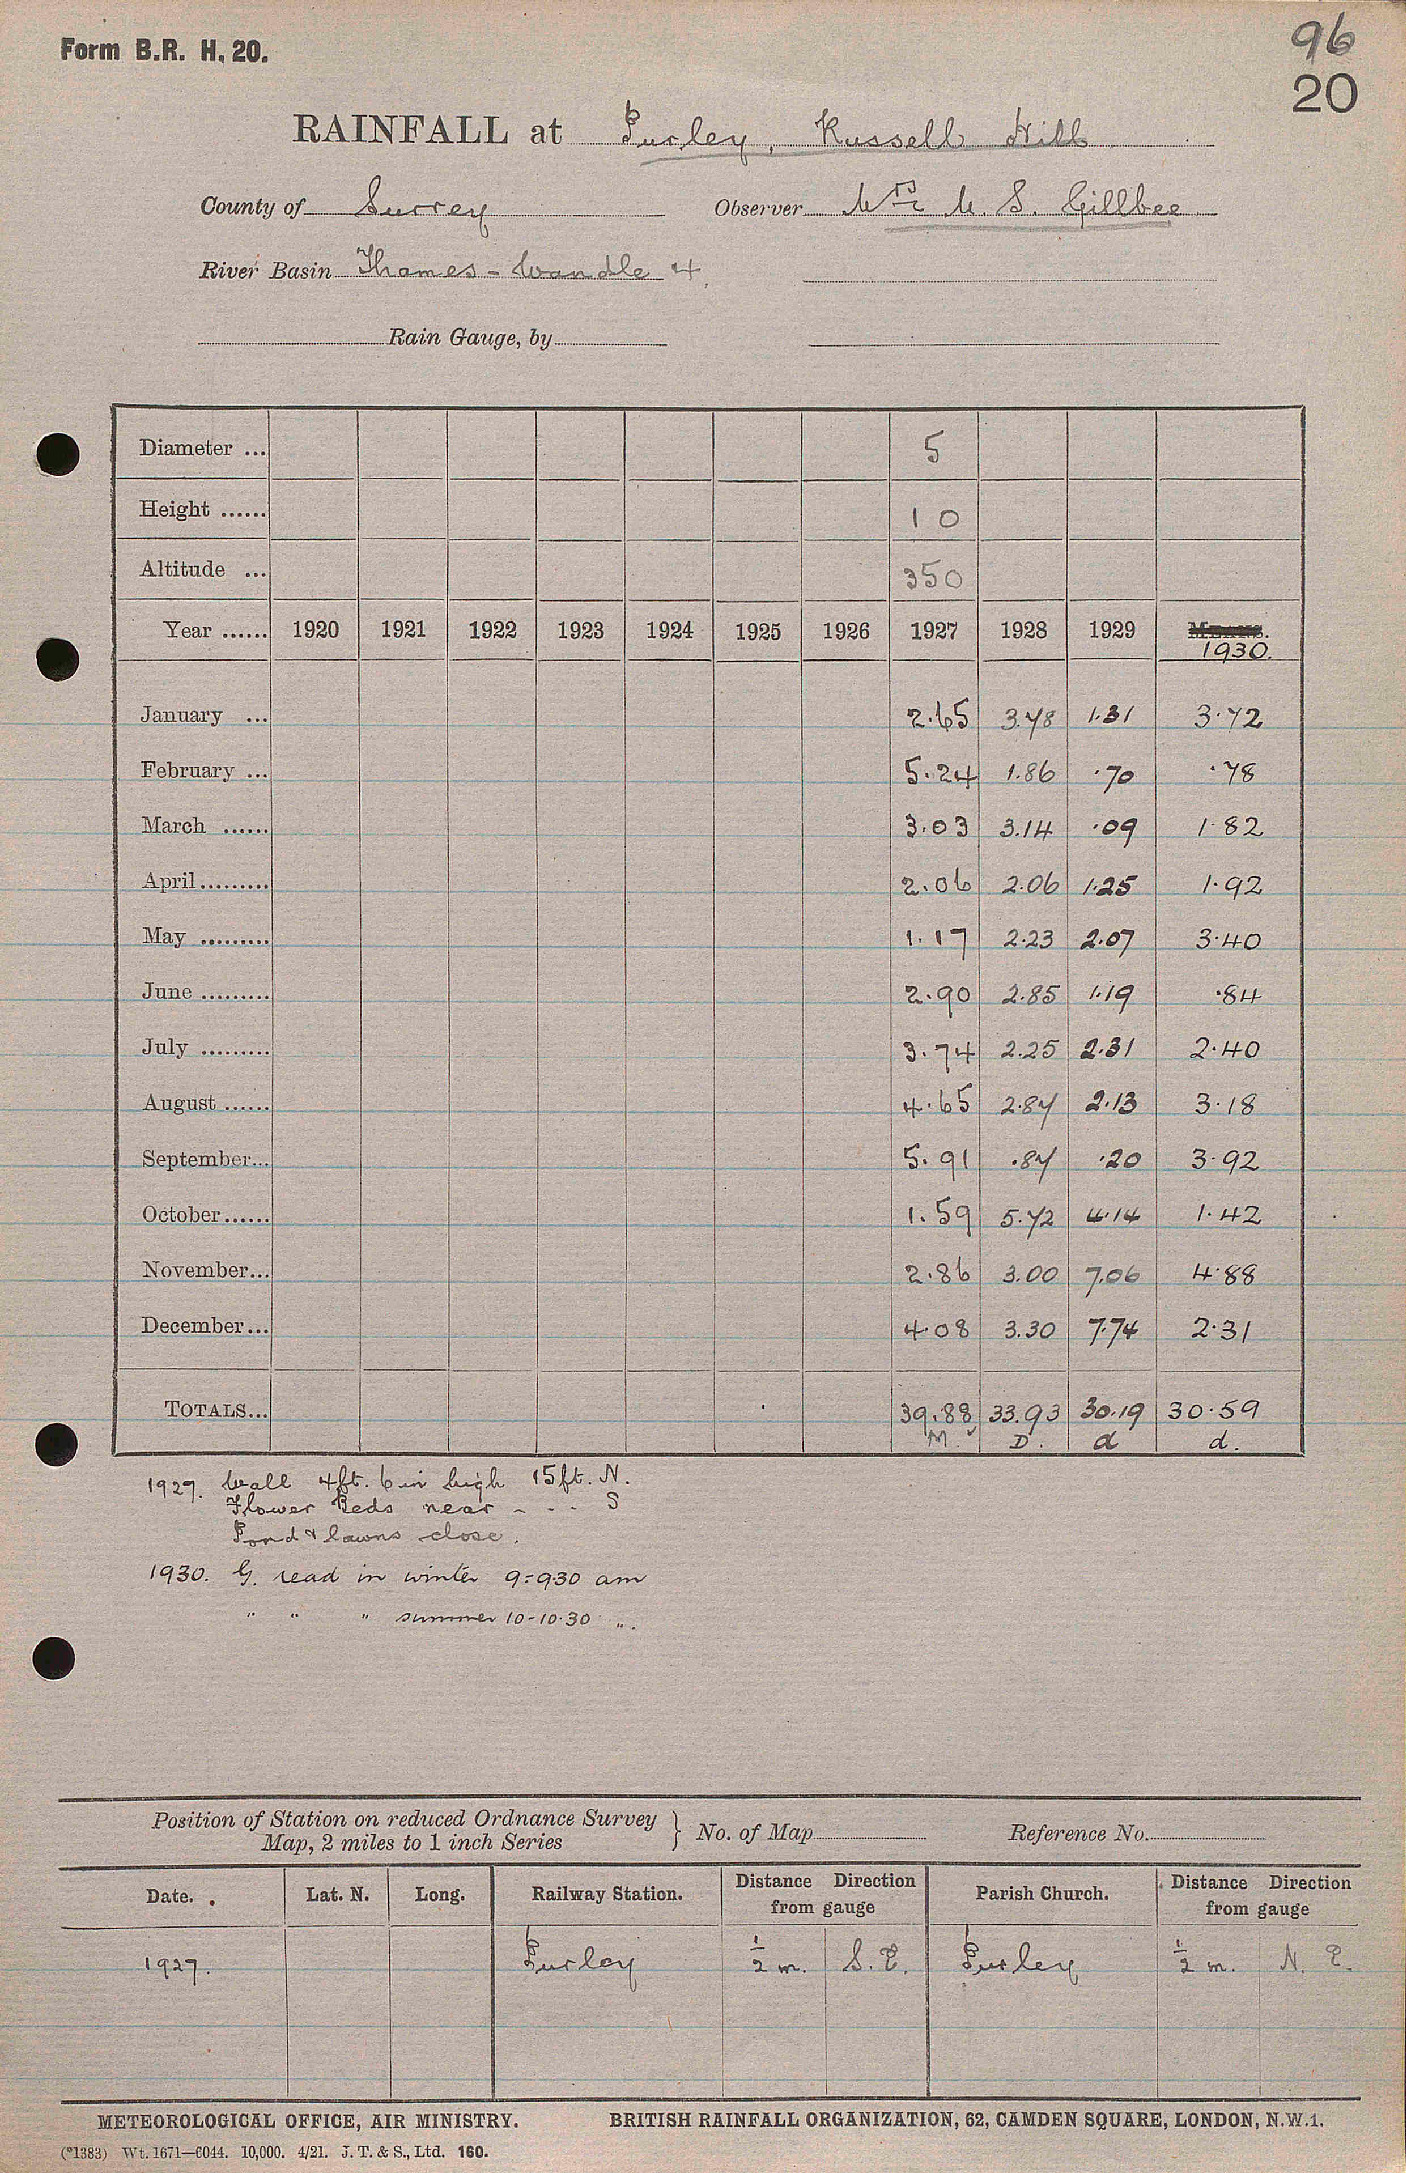 Form B.R. H. 20.
96
20
RAINFALL at Purley, Russell Hill
County of Surrey Observer Mrs M. S. Gillbee
River Basin Thames - Wandle 4
Rain Gauge, by
Diameter ... 5
Height ...... 10
Altitude ... 350
Year ...... 1920 1921 1922 1923 1924 1925 1926 1927 1928 1929 1930.
January ... 2.65 3.78 1.31 3.72
February ... 5.24 1.86 .70 .78
March ...... 3.03 3.14 .09 1.82
April ......... 2.06 2.06 1.25 1.92
May ......... 1.17 2.23 2.07 3.40
June ......... 2.90 2.85 1.19 .84
July ......... 3.74 2.25 2.31 2.40
August ...... 4.65 2.87 2.13 3.18
September... 5.91 .87 .20 3.92
October...... 1.59 5.72 4.14 1.42
November... 2.86 3.00 7.06 4.88
December... 4.08 3.30 7.74 2.31
TOTALS... 39.88 33.93 30.19 30.59
M. D. d d.
1927. Wall 4ft. 6in high 15ft. N.
Flower Beds near - - - S
Pond & lawns close.
1930. G. read in winter 9-9.30 am
" " " summer 10-10.30 ".
Position of Station on reduced Ordnance Survey
Map, 2 miles to 1 inch Series } No. of Map Reference No.
Date. Lat. N. Long. Railway Station. Distance Direction from gauge Parish Church. Distance Direction from gauge
1927. Purley ½ m. S.E. Purley ½ m. N. E.
METEOROLOGICAL OFFICE, AIR MINISTRY. BRITISH RAINFALL ORGANIZATION, 62, CAMDEN SQUARE, LONDON, N.W.1.
(*1383) Wt. 1671—6044. 10,000. 4/21. J. T. & S., Ltd. 160.